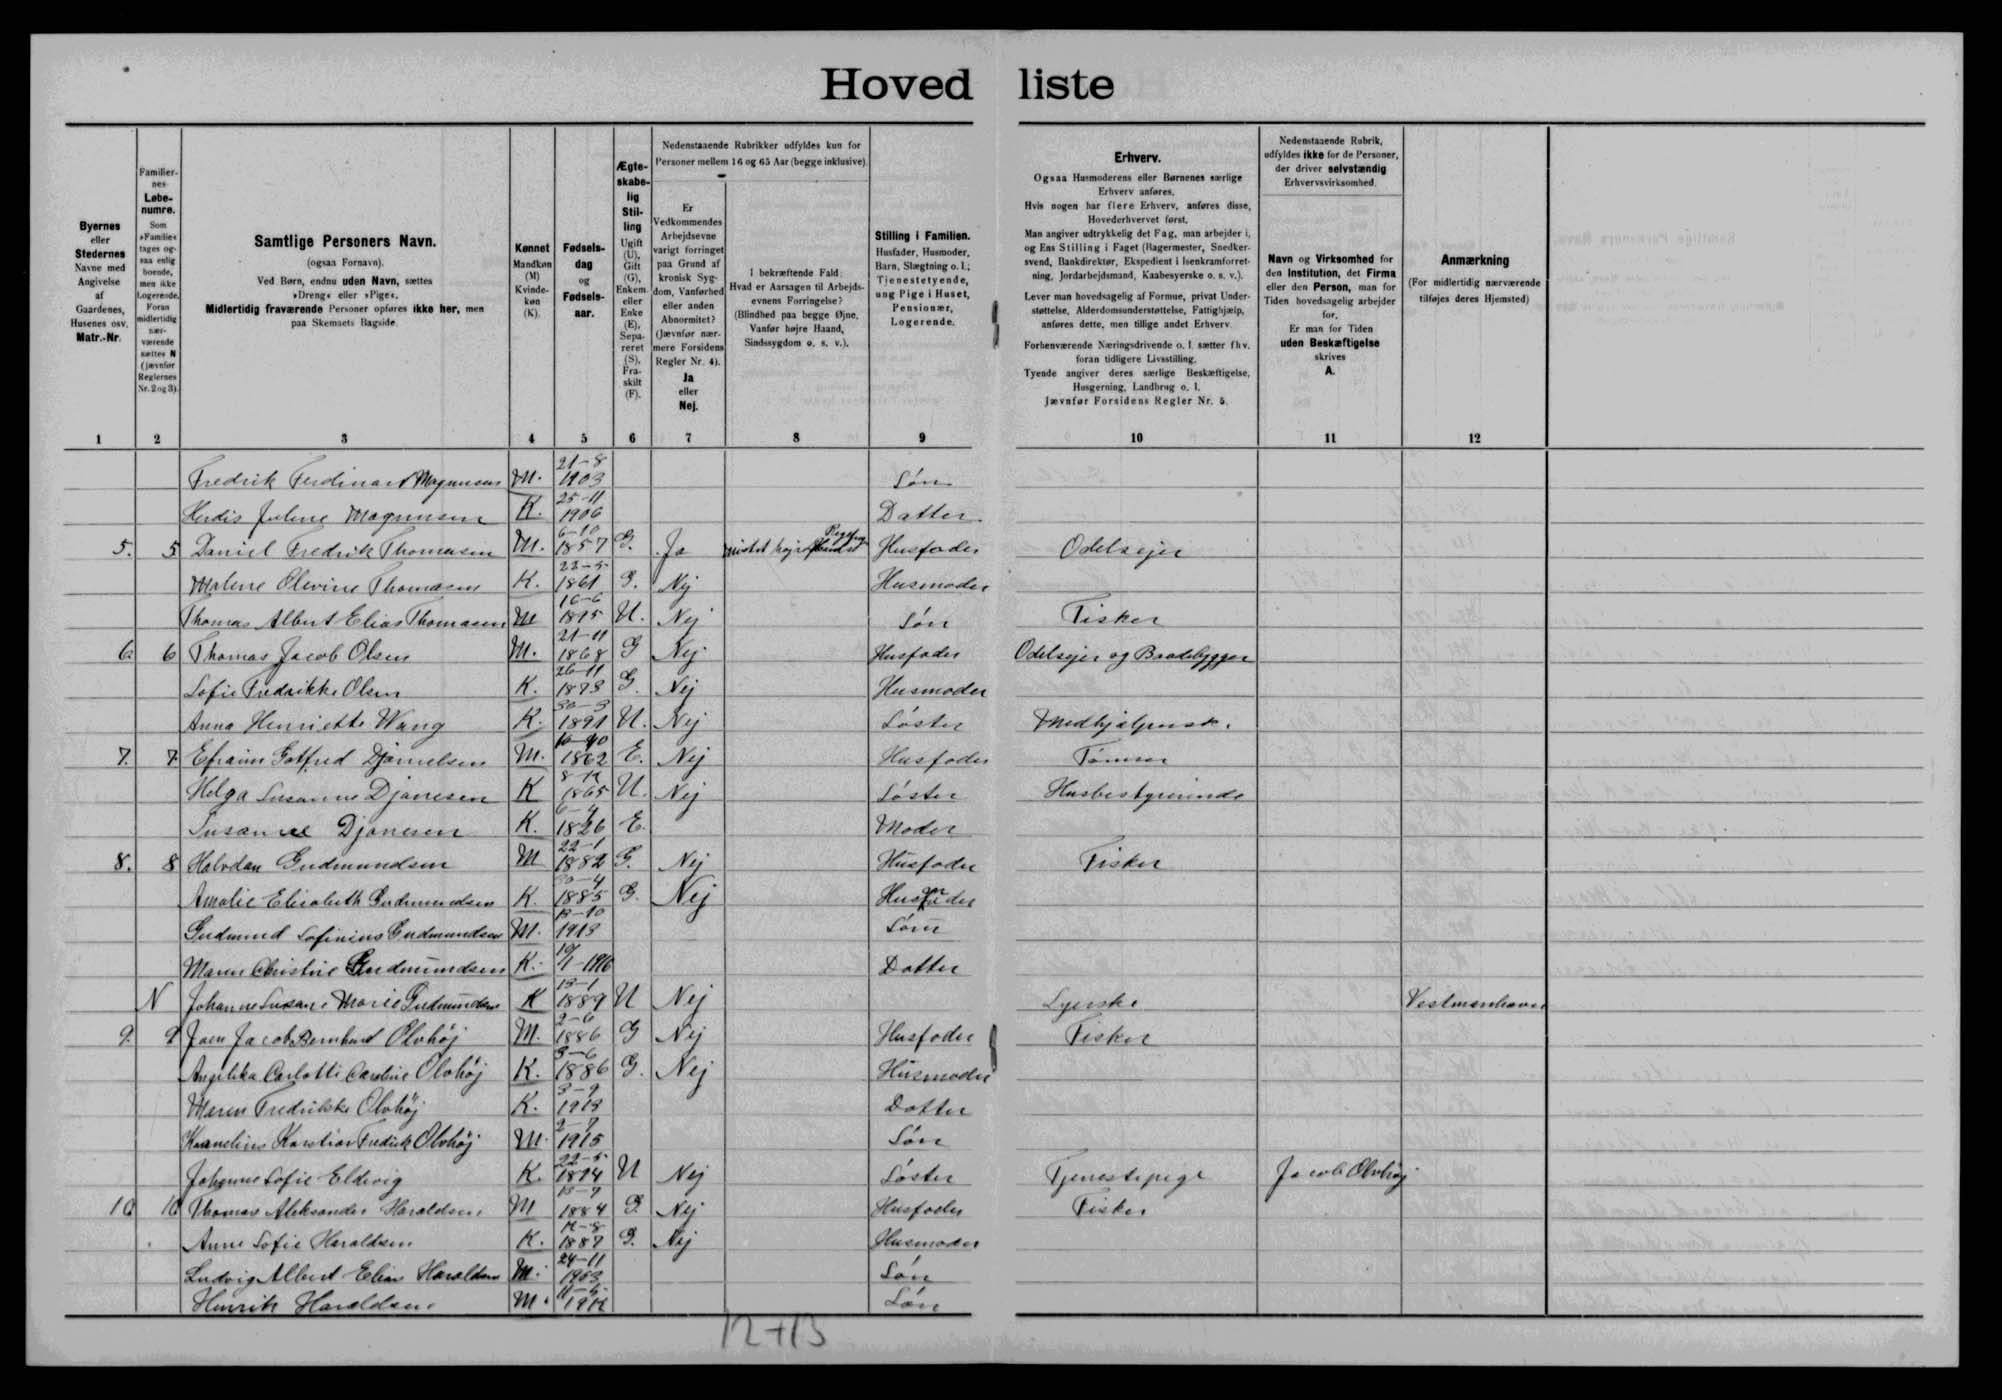 Hoved liste
Byernes
eller
Stedernes
Navne med
Angivelse
af
Gaardenes,
Husenes osv.
Matr.-Nr.
Familier-
nes
Løbe-
numre.
Som
»Familie«
tages og-
saa enlig
boende,
men ikke
Logerende.
Foran
midlertidig
nær-
værende
sættes N
(jævnfør
Reglernes
Nr. 2 og 3).
Samtlige Personers Navn.
(ogsaa Fornavn).
Ved Børn, endnu uden Navn, sættes
»Dreng« eller »Pige«.
Midlertidig fraværende Personer opføres ikke her, men
paa Skemaets Bagside.
Kønnet
Mandkøn
(M)
Kvinde-
køn
(K).
Fødsels-
dag
og
Fødsels-
aar.
Ægte-
skabe-
lig
Stil-
ling
Ugift
(U),
Gift
(G),
Enkem.
eller
Enke
(E),
Sepa-
reret
(S),
Fra-
skilt
(F).
Nedenstaaende Rubrikker udfyldes kun for
Personer mellem 16 og 65 Aar (begge inklusive).
Er
Vedkommendes
Arbejdsevne
varigt forringet
paa Grund af
kronisk Syg-
dom, Vanførhed
eller anden
Abnormitet?
(Jævnfør nær-
mere Forsidens
Regler Nr. 4).
Ja
eller
Nej.
I bekræftende Fald:
Hvad er Aarsagen til Arbejds-
evnens Forringelse?
(Blindhed paa begge Øjne,
Vanfør højre Haand,
Sindssygdom o. s. v.).
Stilling i Familien.
Husfader, Husmoder,
Barn, Slægtning o. l.;
Tjenestetyende,
ung Pige i Huset,
Pensionær,
Logerende.
Erhverv.
Ogsaa Husmoderens eller Børnenes særlige
Erhverv anføres.
Hvis nogen har flere Erhverv, anføres disse,
Hovederhvervet først.
Man angiver udtrykkelig det Fag, man arbejder i,
og Ens Stilling i Faget (Bagermester, Snedker-
svend, Bankdirektør, Ekspedient i Isenkramforret-
ning, Jordarbejdsmand, Kaabesyerske o. s. v.).
Lever man hovedsagelig af Formue, privat Under-
støttelse, Alderdomsunderstøttelse, Fattighjælp,
anføres dette, men tillige andet Erhverv.
Forhenværende Næringsdrivende o. l. sætter fhv.
foran tidligere Livsstilling.
Tyende angiver deres særlige Beskæftigelse,
Husgerning, Landbrug o. l.
Jævnfør Forsidens Regler Nr. 5.
Nedenstaaende Rubrik,
udfyldes ikke for de Personer,
der driver selvstændig
Erhvervsvirksomhed.
Navn og Virksomhed for
den Institution, det Firma
eller den Person, man for
Tiden hovedsagelig arbejder
for.
Er man for Tiden
uden Beskæftigelse
skrives
A.
Anmærkning
(For midlertidig nærværende
tilføjes deres Hjemsted)
1 2 3 4 5 6 7 8 9 10 11 12
Fredrik Ferdinant Magnusen M. 21-8 1903 Søn
Herdis Juline Magnusen K. 25-11 1906 Datter
5. 5 Daniel Fredrik Thomasen M. 6-10 1857 G. Ja mistet højre Husfader Odelsejer
Malene Olevine Thomasen K. 22-5 1861 G. Nej Husmoder
Thomas Albert Elias Thomasen M 16-6 1895 U. Nej Søn Fisker
6 6 Thomas Jacob Olsen M. 21-11 1868 G Nej Husfader Odelsejer og Baadebygger
Sofie Fredrikke Olsen K. 26-11 1873 G. Nej Husmoder
Anna Henriette Wang K. 30-3 1891 U. Nej Søster Medhjælpersk.
7. 7. Efraim Gotfred Djonnelsen M. 1862 E. Nej Husfader Tømrer
Helga Susanne Djonesen K 8-12 1865 U. Nej Søster Husbestyrerinde
Susanne Djonesen K. 6-4 1826 E. Moder
8. 8 Halvdan Gudmundsen M 22-1 1882 G. Nej Husfader Fisker
Amalie Elisabeth Gudmundsen K. 30-4 1885 G. Nej Husmoder
Gudmund Sofinius Gudmundsen M. 13-10 1913 Søn
Maren Christine Gudmundsen K. 10/1-1916 Datter
N Johanne Susane Marie Gudmundsen K 13-1 1889 U Nej Syerske Vestmanhavn
9. 9 Joen Jacob Bernhard Olvhøj M. 2-6 1886 G Nej Husfader Fisker
Angelika Carlotte Caroline Olvhøj K. 3-6 1886 G. Nej Husmoder
Maren Fredrikke Olvhøj K. 3-9 1913 Datter
Kornelius Karstian Fredrik Olvhøj M. 2-7 1915 Søn
Johanne Sofie Eldevig K. 22-5 1894 U Nej Søster Tjenestepige Jacob Olvhøj
10 10 Thomas Aleksander Haraldsen M 13-7 1884 G. Nej Husfader Fisker
Anne Sofie Haraldsen K. 12-8 1887 G. Nej Husmoder
Ludvig Albert Elias Haraldsen M. 24-11 1903 Søn
Henrik Haraldsen M. 11-5- 1912 Søn
12+13